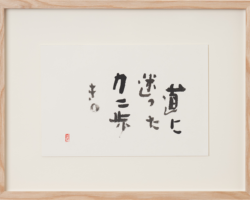 道に
迷った
カニ歩
きの